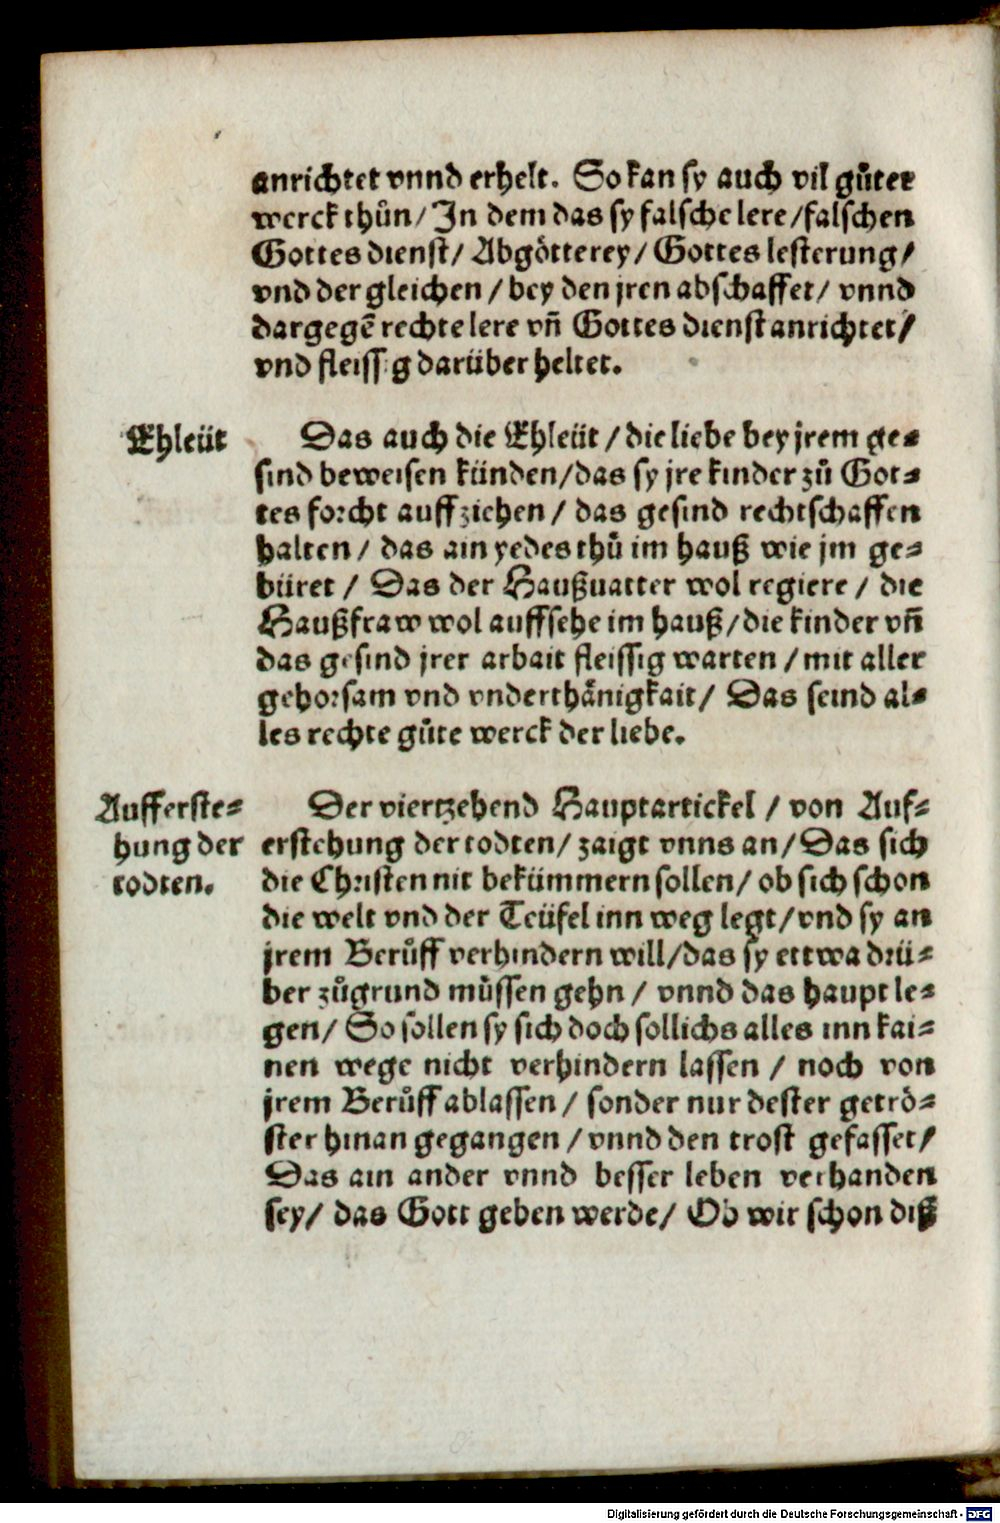 anrichtet vnnd erhelt. So kan sy auch vil gůter
werck thůn / In dem das sy falsche lere / falschen
Gottes dienst / Abgötterey / Gottes lesterung /
vnd der gleichen / bey den jren abschaffet / vnnd
dargegē rechte lere vñ Gottes dienst anrichtet /
vnd fleissig darüber heltet.
Ehleüt
Das auch die Ehleüt / die liebe bey jrem ge⸗
sind beweisen künden / das sy jre kinder zů Got⸗
tes forcht auffziehen / das gesind rechtschaffen
halten / das ain yedes thů im hauß wie jm ge⸗
büret / Das der Haußuatter wol regiere / die
Haußfraw wol auffsehe im hauß / die kinder vñ
das gesind jrer arbait fleissig warten / mit aller
gehorsam vnd vnderthånigkait / Das seind al⸗
les rechte gůte werck der liebe.
Aufferste⸗
hung der
todten.
Der viertzehend Hauptartickel / von Auf⸗
erstehung der todten / zaigt vnns an / Das sich
die Christen nit bekümmern sollen / ob sich schon
die welt vnd der Teüfel inn weg legt / vnd sy an
jrem Berůff verhindern will / das sy ettwa drü⸗
ber zůgrund můssen gehn / vnnd das haupt le⸗
gen / So sollen sy sich doch sollichs alles inn kai⸗
nen wege nicht verhindern lassen / noch von
jrem Berůff ablassen / sonder nur dester getrö⸗
ster hinan gegangen / vnnd den trost gefasset /
Das ain ander vnnd besser leben verhanden
sey / das Gott geben werde / Ob wir schon diß
Digitalisierung gefördert durch die Deutsche Forschungsgemeinschaft - DFG